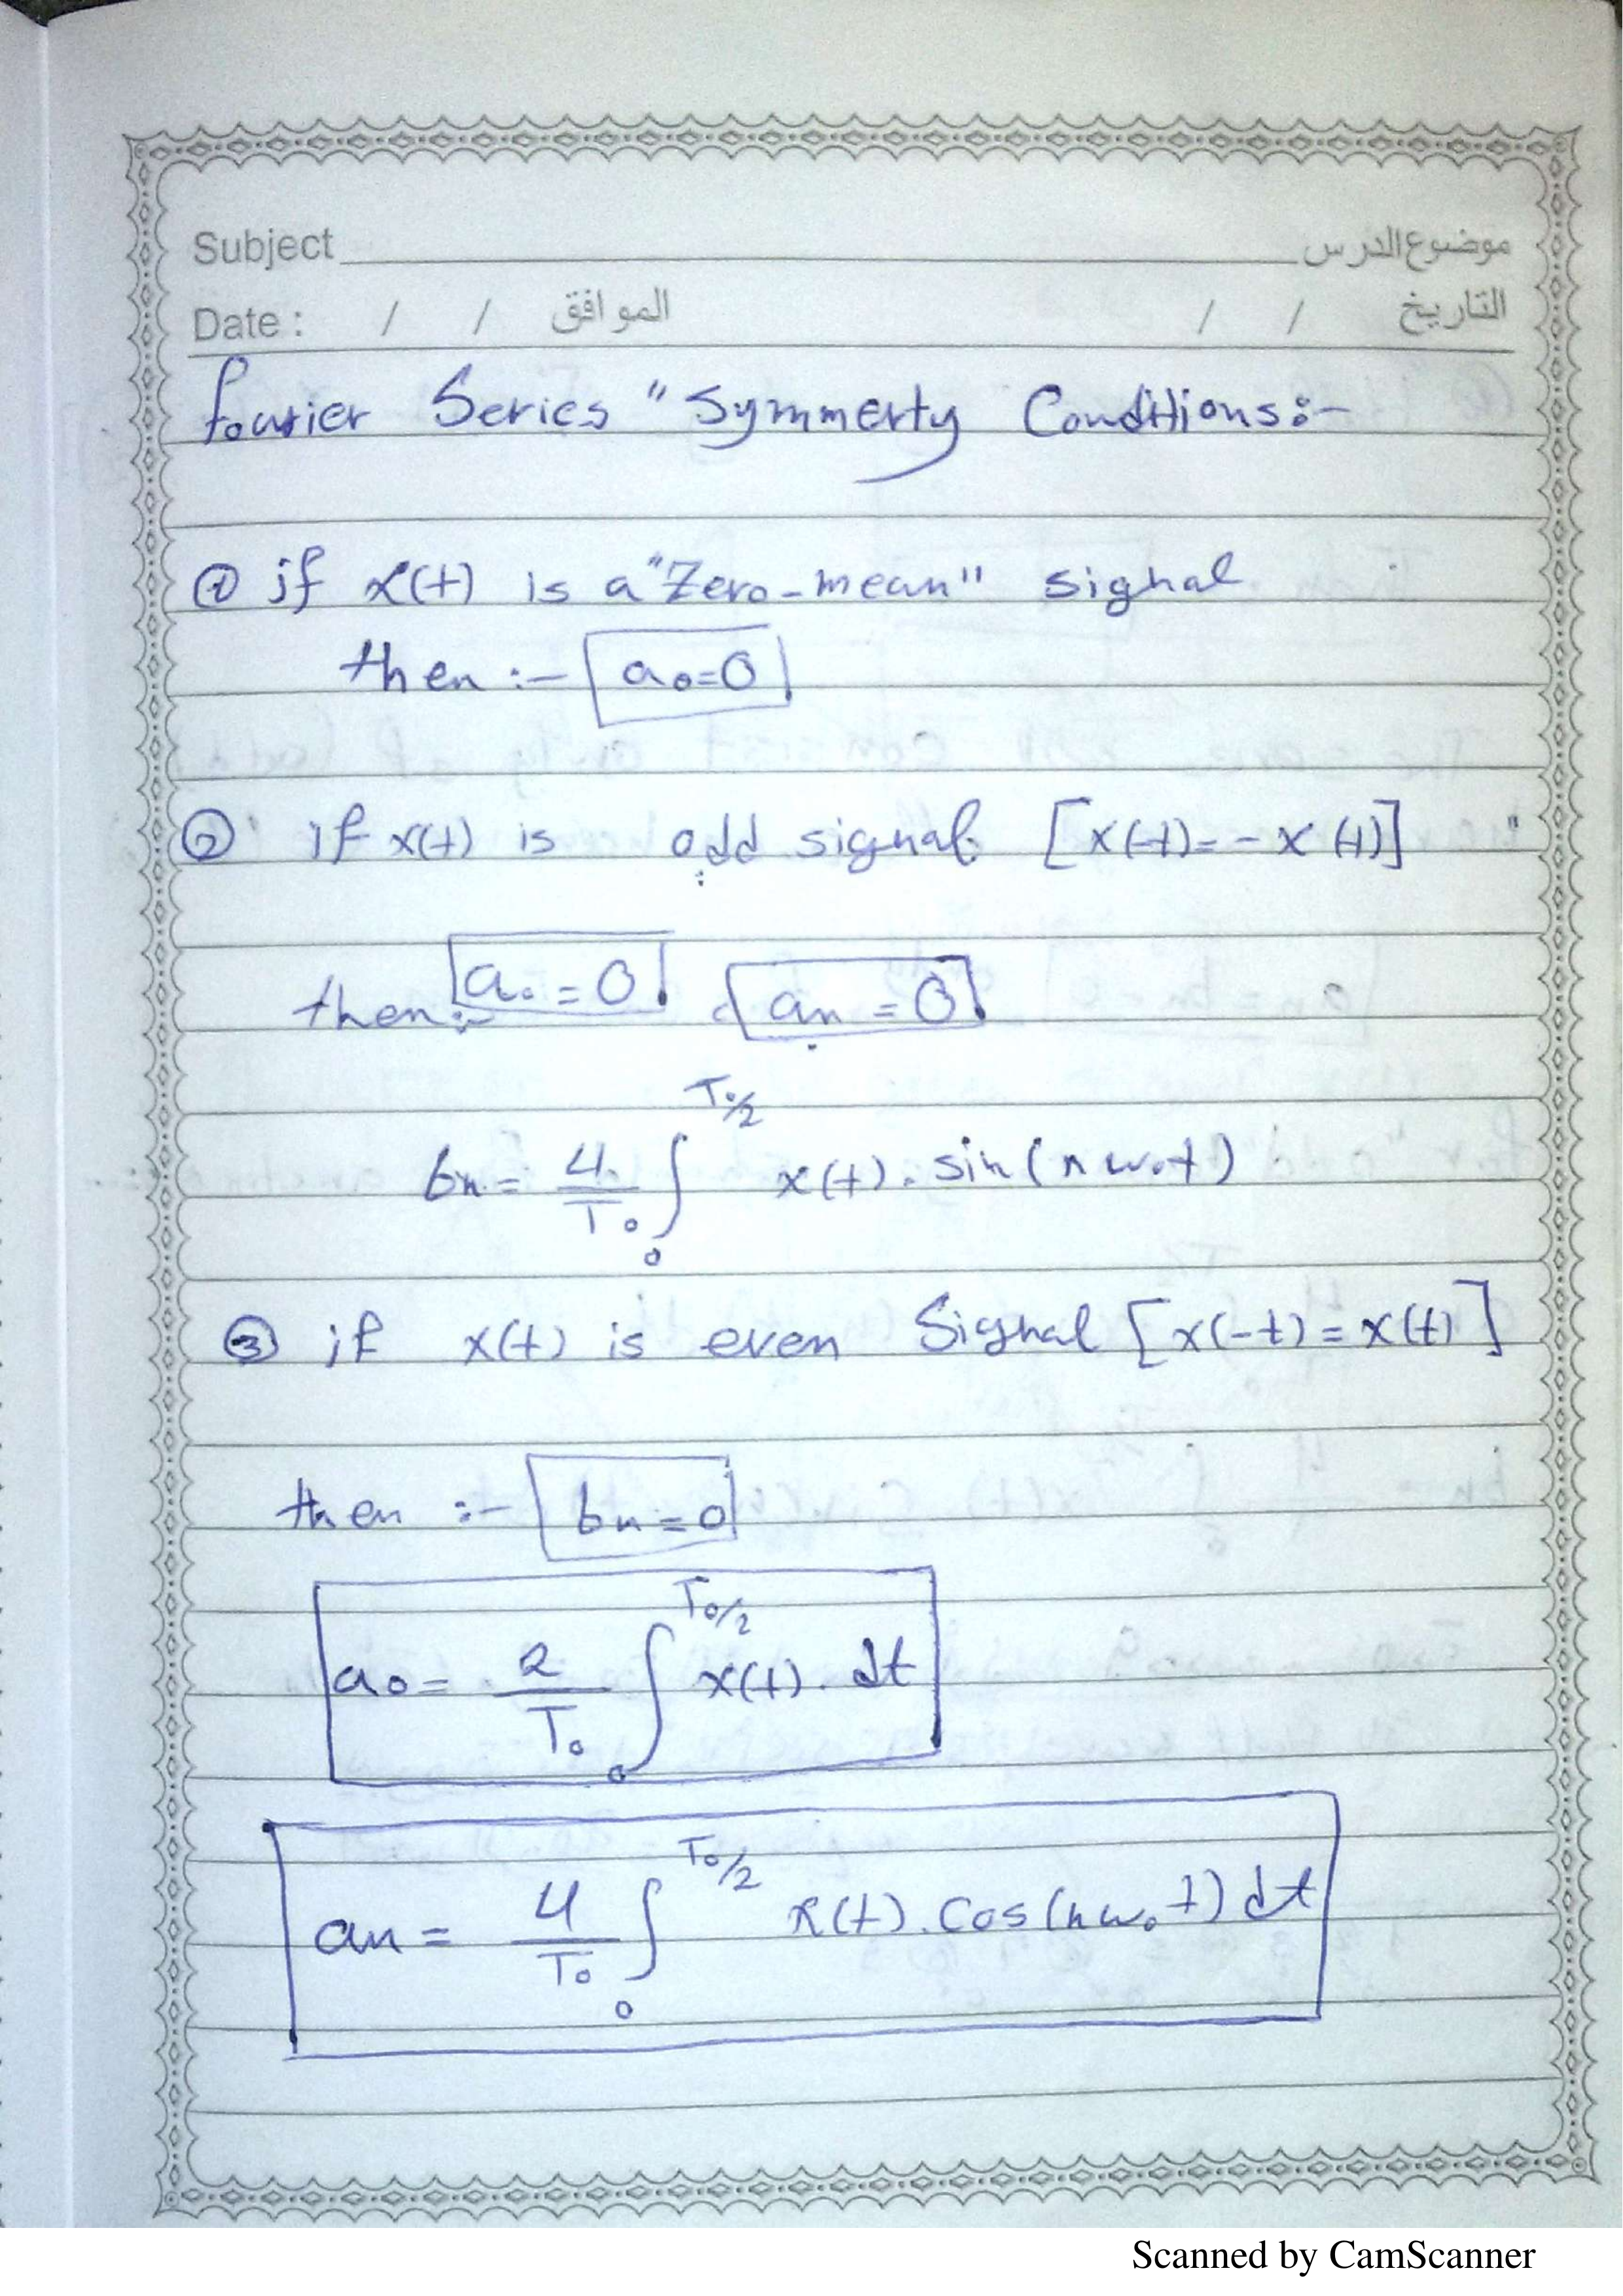 Subject موضوع الدرس
Date : / / الموافق / / التاريخ
fourier Series "Symmerty Conditions:-
① if x(t) is a "Zero-mean" signal
then :- a₀=0
② if x(t) is odd signal [x(-t)=-x(t)]
then:- a₀ = 0 aₙ = 0
bₙ = 4/T₀ ∫₀^{T₀/2} x(t). sin(nω₀t)
③ if x(t) is even Signal [x(-t)=x(t)]
then :- bₙ=0
a₀= 2/T₀ ∫₀^{T₀/2} x(t). dt
aₙ = 4/T₀ ∫₀^{T₀/2} x(t). Cos(nω₀t) dt
Scanned by CamScanner